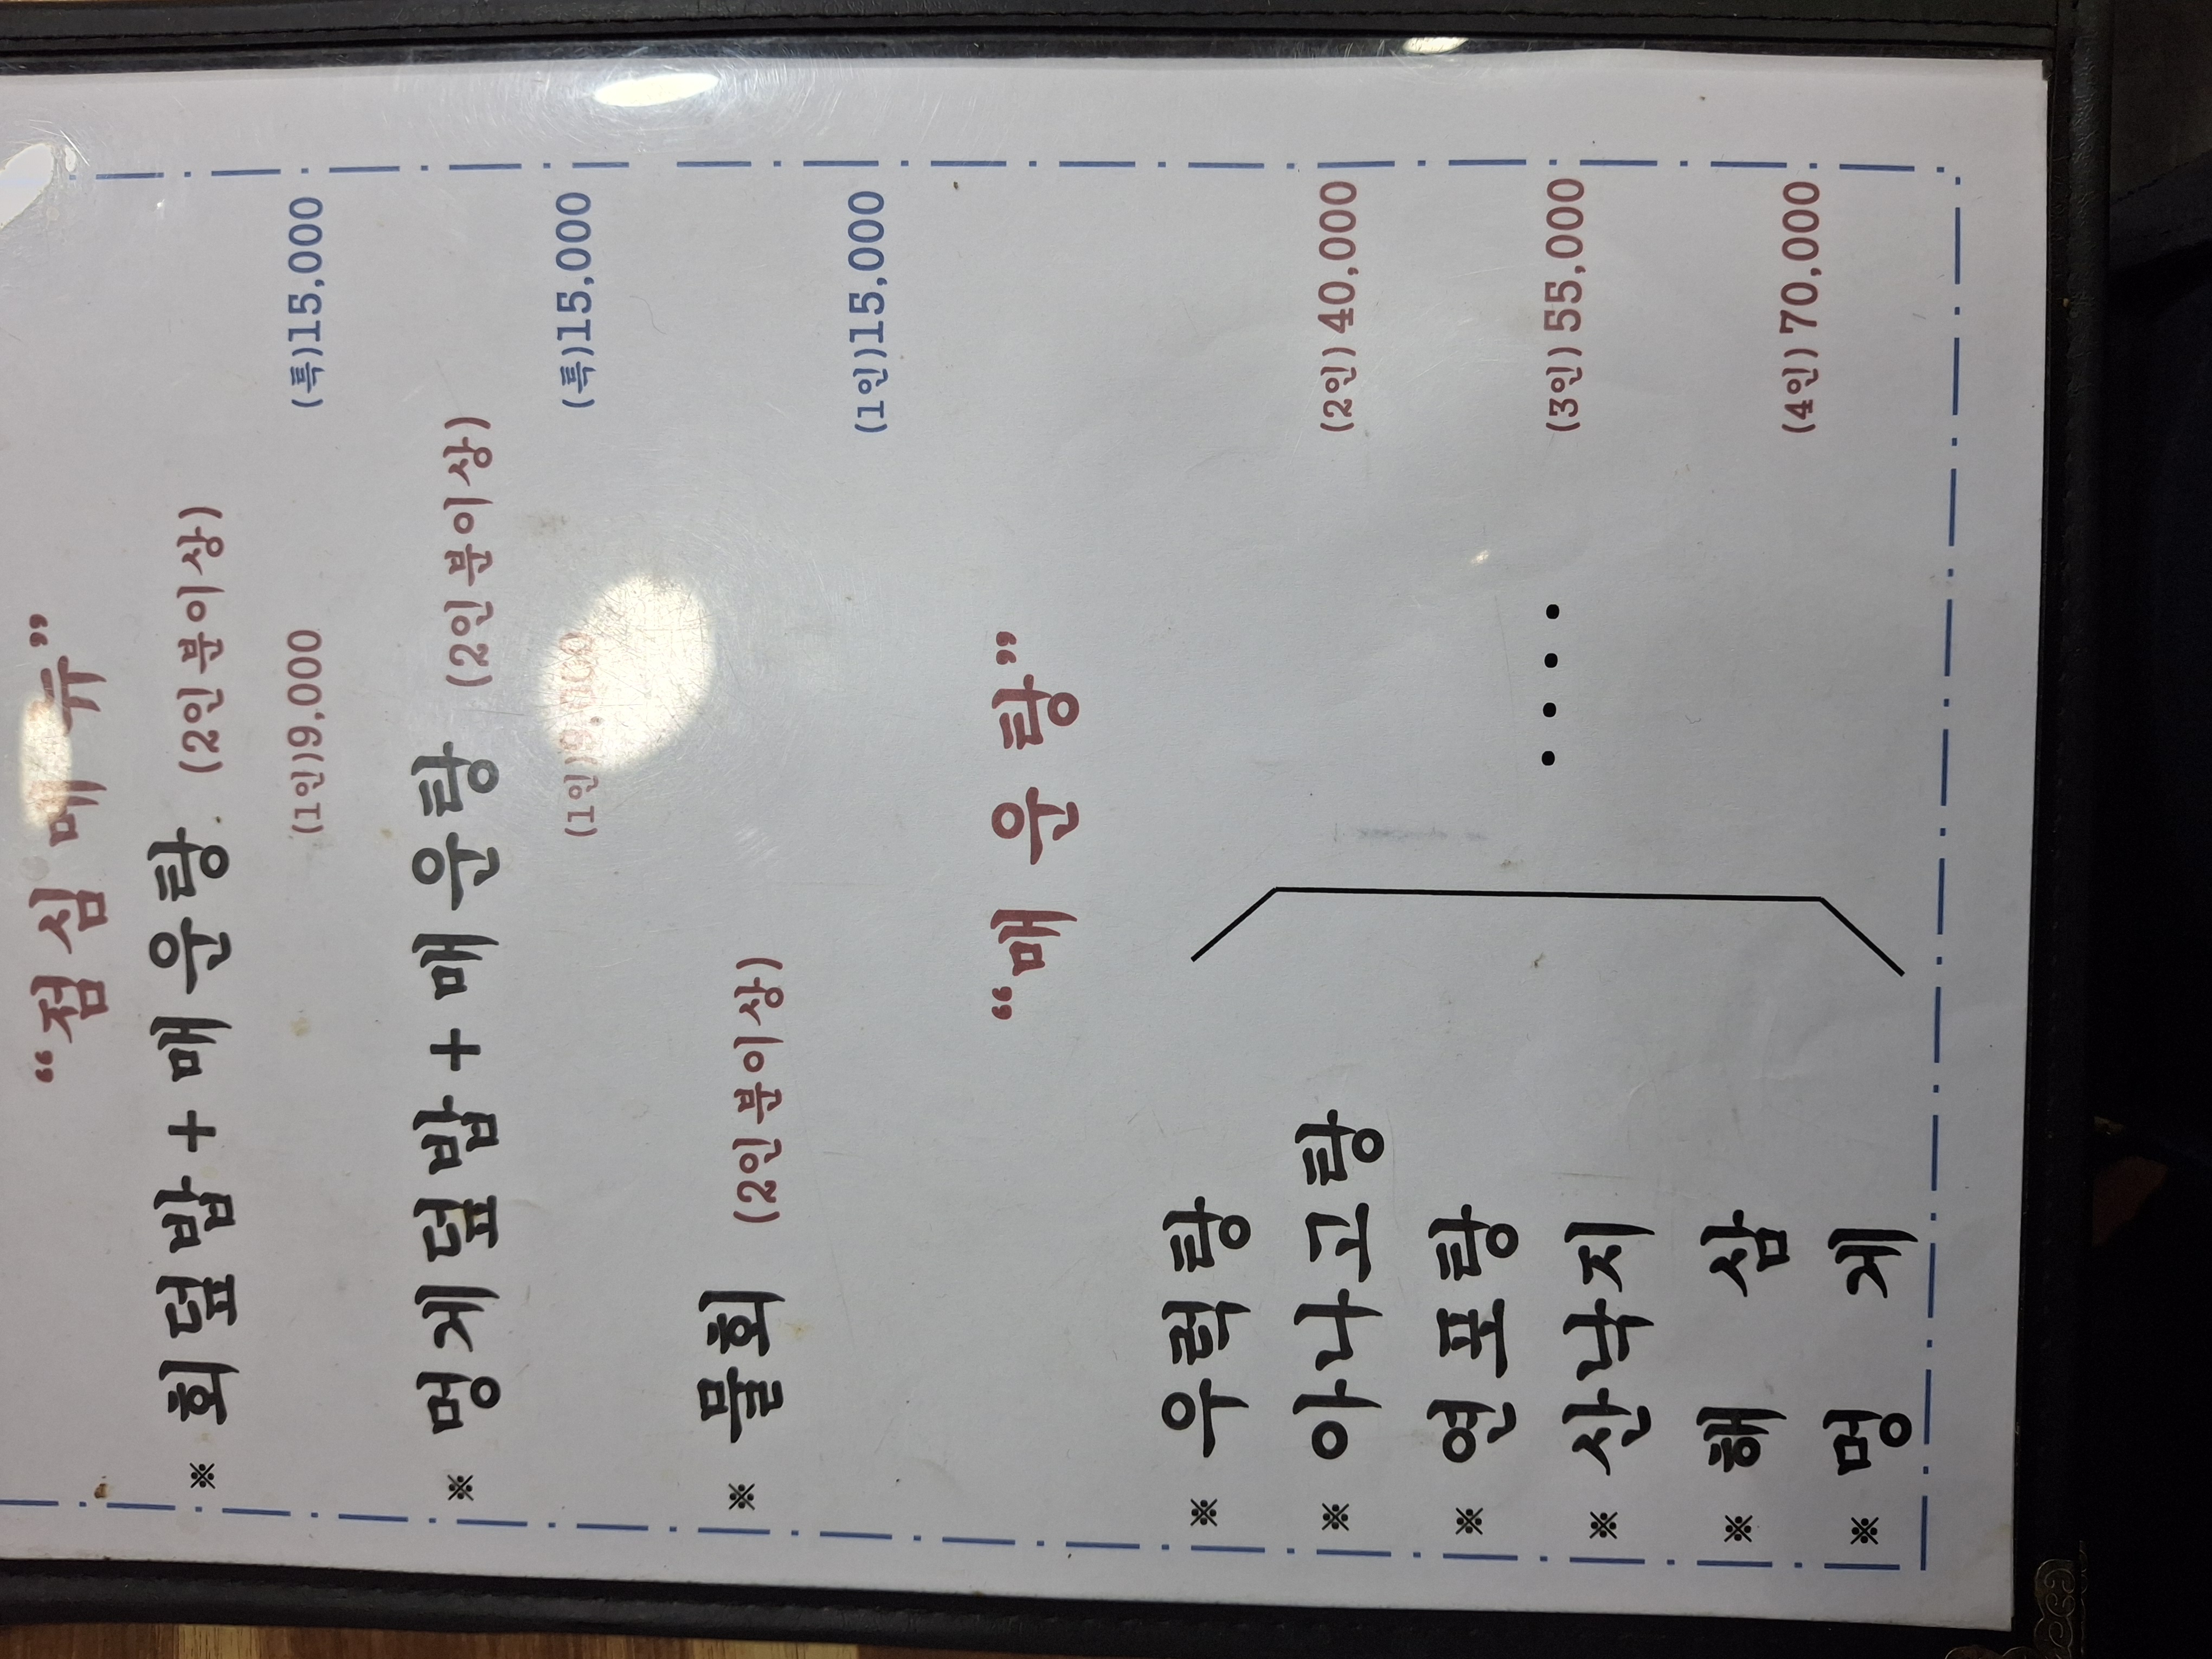 “점 심 메 뉴”
※ 회덮밥+매운탕 (2인분이상)
(1인)9,000 (특)15,000
※ 멍게덮밥+매운탕 (2인분이상)
(1인)9,000 (특)15,000
※ 물회 (2인분이상)
(1인)15,000
“매 운 탕”
※ 우럭탕
※ 아나고탕 (2인) 40,000
※ 연포탕
※ 산낙지 ···· (3인) 55,000
※ 해 삼
※ 멍 게 (4인) 70,000